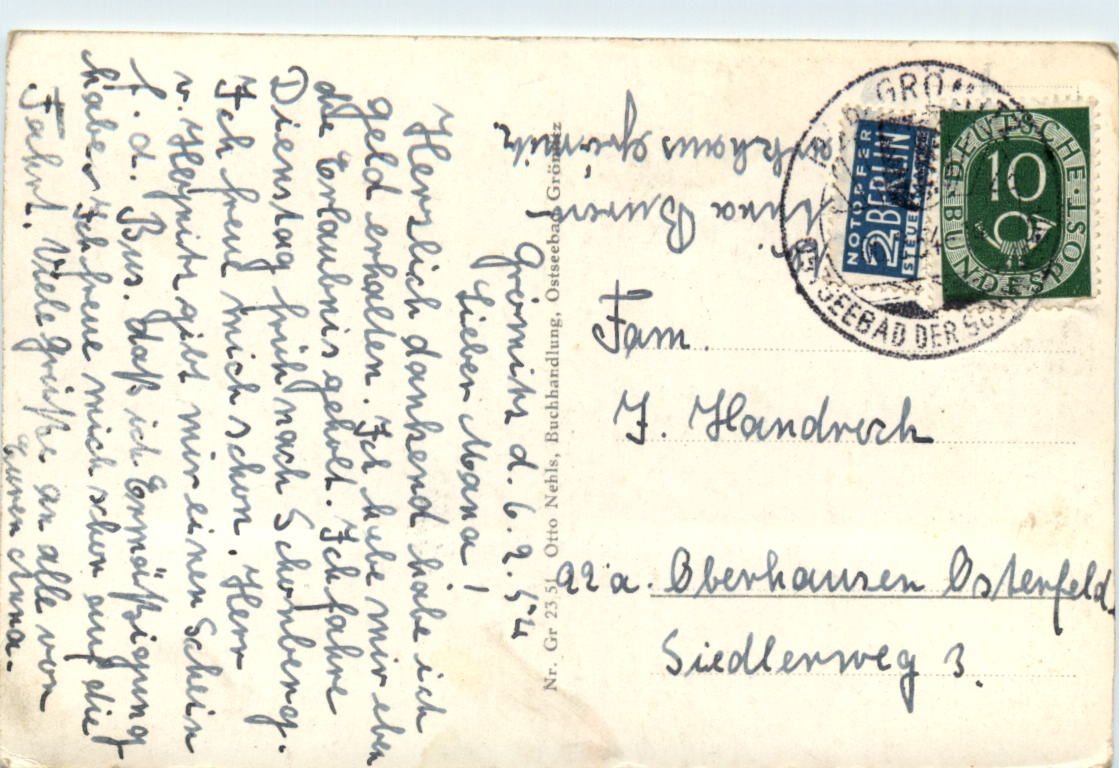 Grömitz d. 6.2.54
Lieber Mana!
Herzlich dankend habe ich
Geld erhalten. Ich habe mir eben
die Erlaubnis geholt. Ich fahre
Dienstag früh nach Schönberg.
Ich freu mich schon. Herr
v. Heynitz gibt mir einen Schein
f. d. Bus. daß ich Ermäßigung
habe. Ich freue mich schon auf die
Fahrt. Viele Grüße an alle von
Euren Anna.
Nr. Gr 23 51 Otto Nehls, Buchhandlung, Ostseebad Grömitz
Grömitz
NOTOPFER
2 BERLIN
STEUERMARKE
DEUTSCHE BUNDESPOST
10
GRÖMITZ
OSTSEEBAD DER SONNENSEITE
Fam.
J. Handrech
22a. Oberhausen Osterfeld.
Siedlerweg 3.